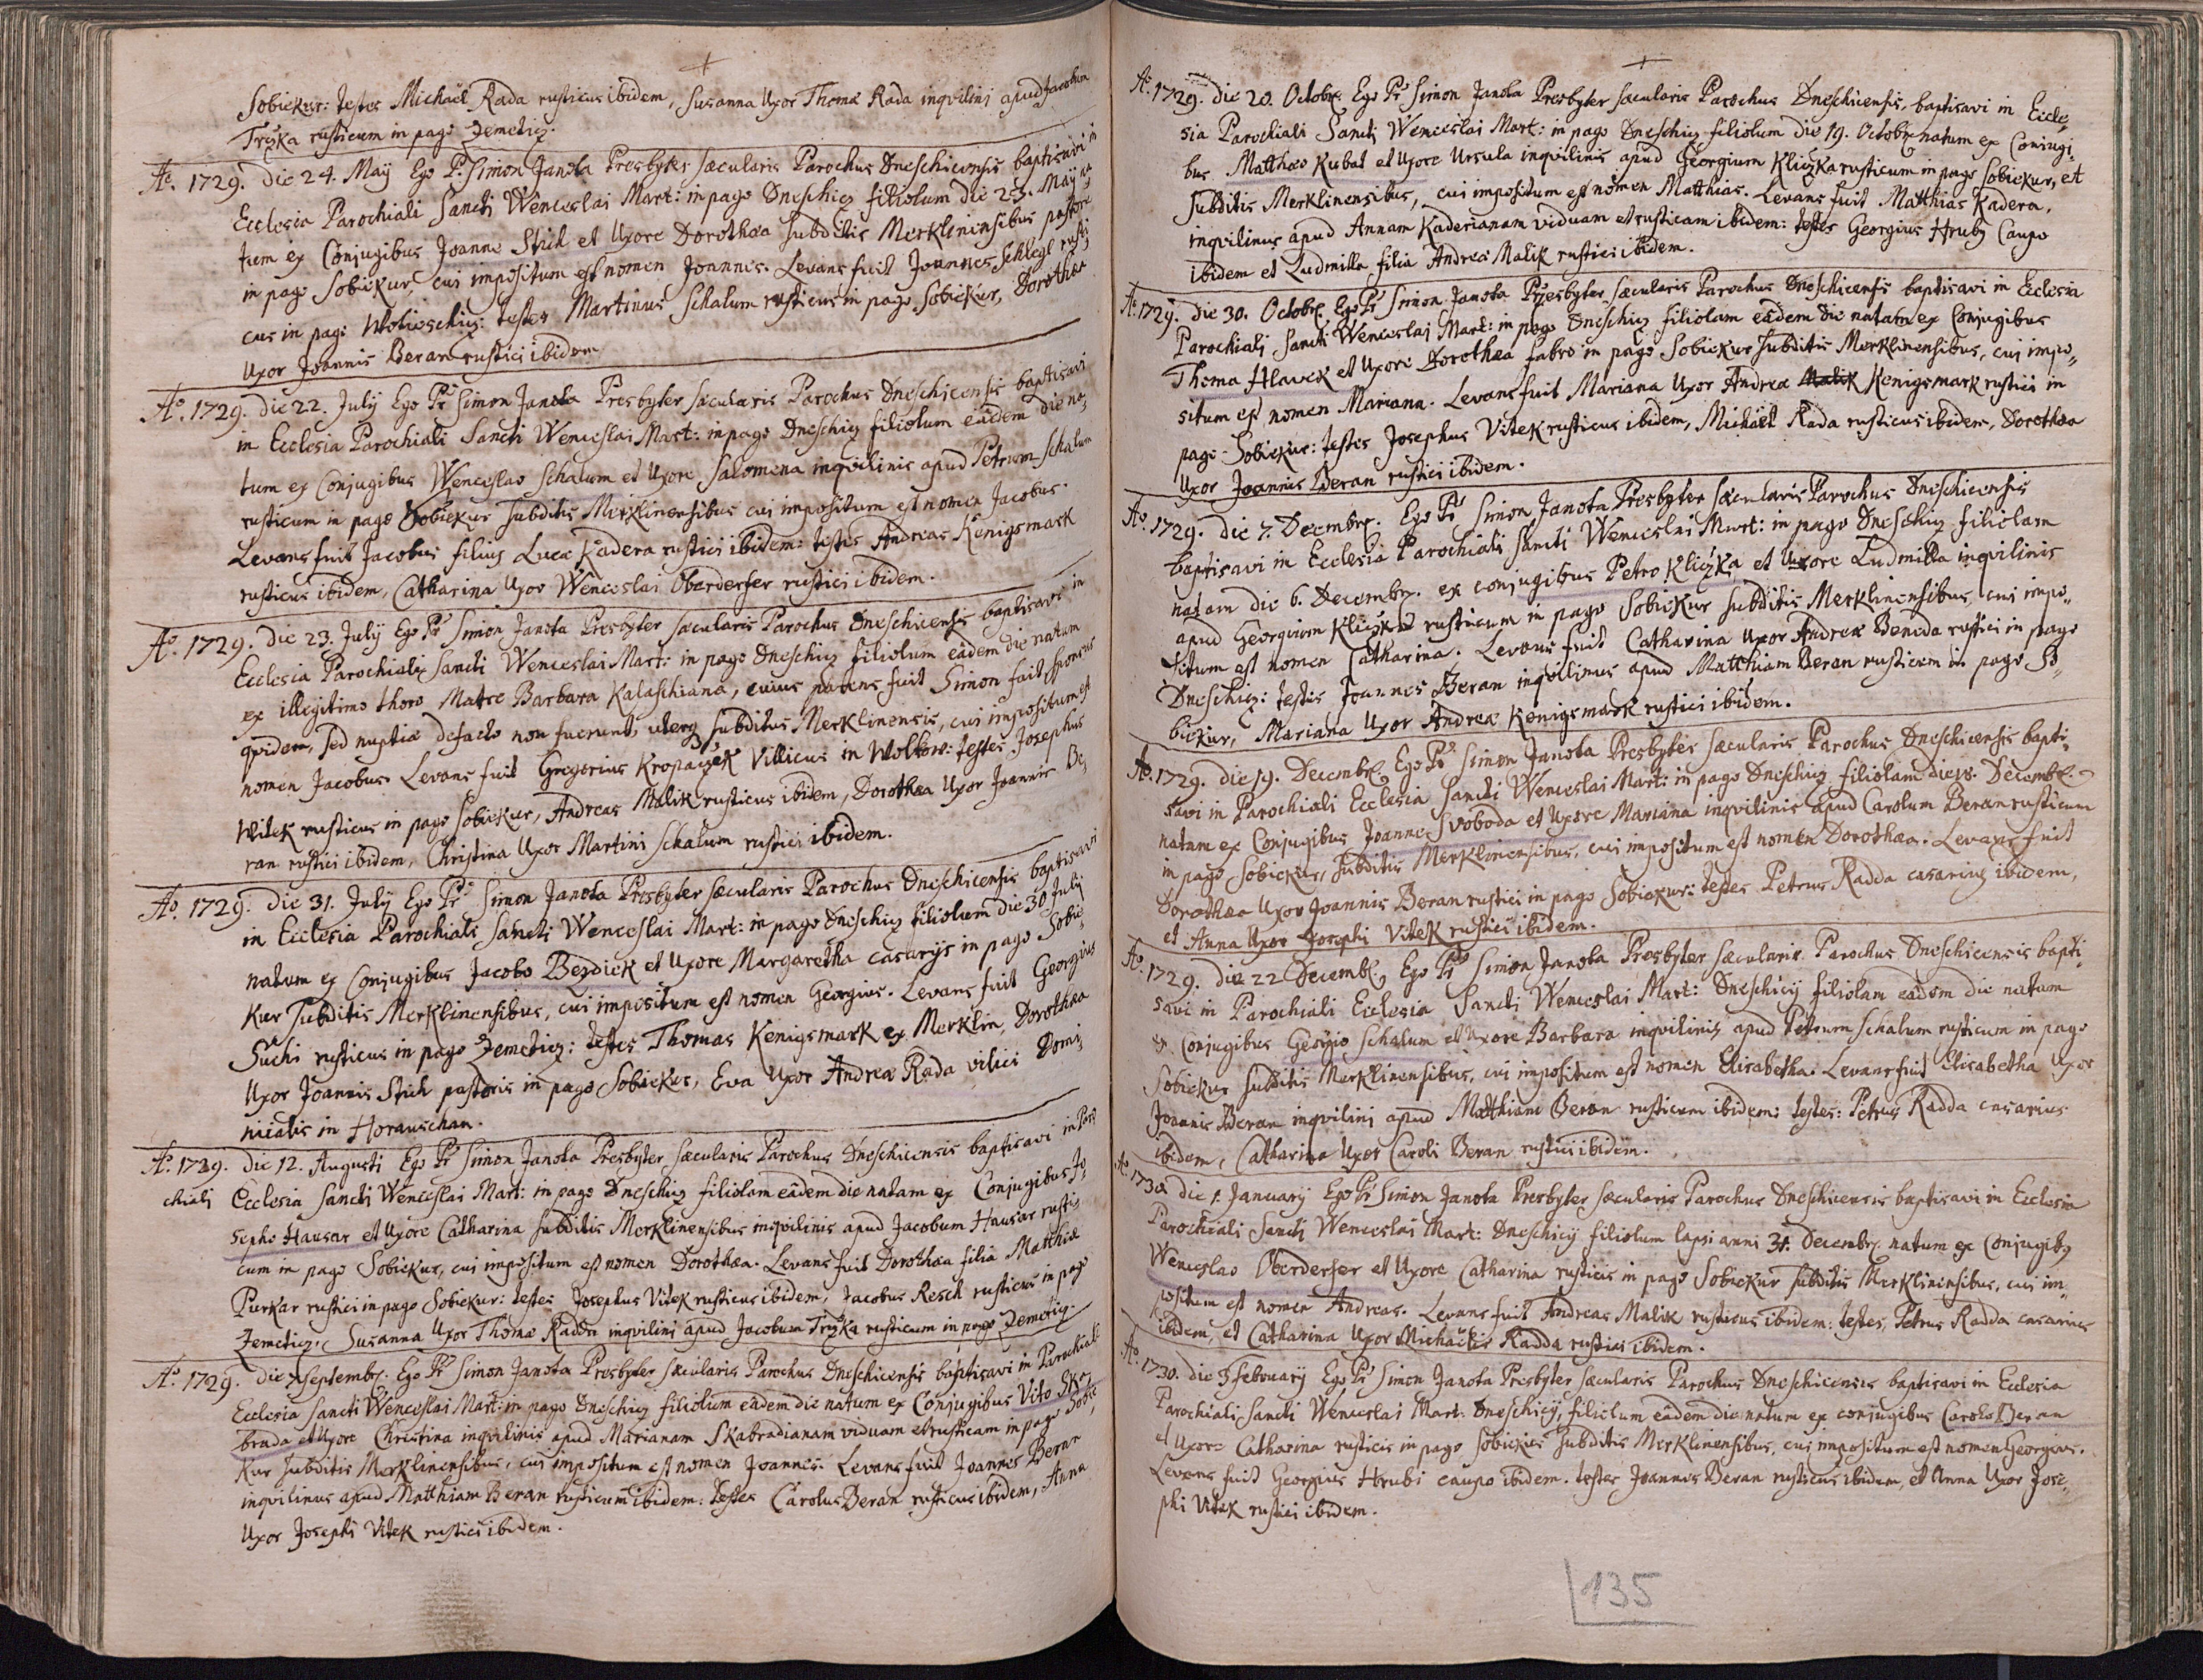 Sobiekur: testes Michaël Rada rusticus ibidem, Susanna Uxor Thomæ Rada inqvilini apud Jacobum
Tryka rusticum in pago Zemeticz.
Aº. 1729. die 24. Maÿ Ego P. Simon Janota Presbyter sæcularis Parochus Dneschicensis baptisavi in
Ecclesia Parochiali Sancti Wenceslai Mart: in pago Dneschicz filiolum die 23. Maÿ na,
tum ex Conjugibus Joanne Stich et Uxore Dorothæa subditis Merklinensibus pastore
in pago Sobiekur, cui impositum est nomen Joannes. Levans fuit Joannes Schlegl rusti,
cus in pago Wotieschicz: testes Martinus Schalum rusticus in pago Sobiekur, Dorothæa
Uxor Joannis Beran rustici ibidem
Aº. 1729. die 22. July Ego Pr Simon Janota Presbyter sæcularis Parochus Dneschicensis baptisavi
in Ecclesia Parochiali Sancti Wenceslai Mart: in pago Dneschicz filiolum eâdem die na,
tum ex Conjugibus Wenceslao Schalum et Uxore Salomena inqvilinis apud Petrum Schalum
rusticum in pago Sobiekur subditis Merklinensibus cui impositum est nomen Jacobus.
Levans fuit Jacobus filius Lucæ Kadera rustici ibidem: testes Andreas Kenigsmark
rusticus ibidem, Catharina Uxor Wenceslai Oberderfer rustici ibidem.
Aº. 1729. die 23. July Ego Pr Simon Janota Presbyter sæcularis Parochus Dneschicensis baptisavi in
Ecclesia Parochiali Sancti Wenceslai Mart: in pago Dneschicz filiolum eâdem die natum
ex illegitimo thoro Matre Barbara Kalaschiana, cuius parens fuit Simon fait sponsus
qvidem, sed nuptiæ defacto non fuerunt, uterq subditus Merklinensis, cui impositum est
nomen Jacobus. Levans fuit Gregorius Kropaczek Villicus in Wolkow: testes Josephus
Witek rusticus in pago Sobiekur, Andreas Malik rusticus ibidem, Dorothæa Uxor Joannis Be,
ran rustici ibidem, Christina Uxor Martini Schalum rustici ibidem.
Aº. 1729. die 31. July Ego Pr Simon Janota Presbyter sæcularis Parochus Dneschicensis baptisavi
in Ecclesia Parochiali Sancti Wenceslai Mart: in pago Dneschicz filiolum die 30 July
natum ex Conjugibus Jacobo Bezdiek et Uxore Margaretha casarÿs in pago Sobie,
kur subditis Merklinensibus, cui impositum est nomen Georgius. Levans fuit Georgius
Suchi rusticus in pago Zemeticz: testes Thomas Kenigsmark ex Merklin, Dorothæa
Uxor Joannis Stich pastoris in pago Sobiekur, Eva Uxor Andreæ Rada vilici Domi,
nicalis in Horauschan.
Aº. 1729. die 12. Augusti Ego Pr Simon Janota Presbyter sæcularis Parochus Dneschicensis baptisavi in Paro,
chiali Ecclesia Sancti Wenceslai Mart: in pago Dneschicz filiolam eâdem die natam ex Conjugibus Jo,
sepho Hausar et Uxore Catharina subditis Merklinensibus inqvilinis apud Jacobum Hausar rusti,
cum in pago Sobiekur, cui impositum est nomen Dorothæa. Levans fuit Dorothæa filia Matthiæ
Purkar rustici in pago Sobiekur: testes Josephus Vitek rusticus ibidem, Jacobus Resch rusticus in pago
Zemeticz, Susanna Uxor Thomæ Radda inqvilini apud Jacobum Tryka rusticum in pago Zemeticz.
Aº. 1729. die 7. Septembr. Ego Pr Simon Janota Presbyter sæcularis Parochus Dneschicensis baptisavi in Parochiali
Ecclesia Sancti Wenceslai Mart: in pago Dneschicz filiolum eâdem die natum ex Conjugibus Vito Ska,
brada et Uxore Christina inqvilinis apud Marianam Skabradianam viduam et rusticam in pago Sobie,
kur subditis Merklinensibus, cui impositum est nomen Joannes. Levans fuit Joannes Beran
inqvilinus apud Matthiam Beran rusticum ibidem: testes Carolus Beran rusticus ibidem, Anna
Uxor Josephi Vitek rustici ibidem.
Aº. 1729. die 20. Octobr. Ego Pr Simon Janota Presbyter sæcularis Parochus Dneschicensis, baptisavi in Eccle,
sia Parochiali Sancti Wenceslai Mart: in pago Dneschicz filiolum die 19. Octobr. natum ex Conjugi,
bus Matthæo Kubat et Uxore Ursula inqvilinis apud Georgium Kliczka rusticum in pago Sobiekur, et
subditis Merklinensibus, cui impositum est nomen Matthias. Levans fuit Matthias Kadera,
inqvilinus apud Annam Kaderianam viduam et rusticam ibidem: testes Georgius Hruby Caupo
ibidem et Ludmilla filia Andreæ Malik rustici ibidem.
Aº. 1729. die 30. Octobr. Ego Pr Simon Janota Presbyter sæcularis Parochus Dneschicensis baptisavi in Ecclesia
Parochiali Sancti Wenceslai Mart: in pago Dneschicz filiolam eâdem die natam ex Conjugibus
Thoma Hlavek et Uxore Dorothæa fabro in pago Sobiekur subditis Merklinensibus, cui impo,
situm est nomen Mariana. Levans fuit Mariana Uxor Andreæ Malik Kenigsmark rustici in
pago Sobiekur: testes Josephus Vitek rusticus ibidem, Michaël Rada rusticus ibidem, Dorothæa
Uxor Joannis Beran rustici ibidem.
Aº. 1729. die 7. Decembr. Ego Pr Simon Janota Presbyter sæcularis Parochus Dneschicensis
baptisavi in Ecclesia Parochiali Sancti Wenceslai Mart: in pago Dneschicz filiolam
natam die 6. Decembr. ex conjugibus Petro Kliczka et Uxore Ludmilla inqvilinis
apud Georgium Kliczka rusticum in pago Sobiekur subditis Merklinensibus, cui impo,
situm est nomen Catharina. Levans fuit Catharina Uxor Andreæ Beneda rustici in pago
Dneschicz: testes Joannes Beran inqvilinus apud Matthiam Beran rusticum in pago So,
biekur, Mariana Uxor Andreæ Kenigsmark rustici ibidem.
Aº. 1729. die 19. Decembr. Ego Pr Simon Janota Presbyter sæcularis Parochus Dneschicensis bapti,
savi in Parochiali Ecclesia Sancti Wenceslai Mart: in pago Dneschicz filiolam die 18. Decembr.
natam ex Conjugibus Joanne Svoboda et Uxore Mariana inqvilinis apud Carolum Beran rusticum
in pago Sobiekur, subditis Merklinensibus, cui impositum est nomen Dorothæa. Levans fuit
Dorothæa Uxor Joannis Beran rustici in pago Sobiekur: testes Petrus Radda casarius ibidem,
et Anna Uxor Josephi Vitek rustici ibidem.
Aº. 1729. die 22 Decembr. Ego Pr Simon Janota Presbyter sæcularis Parochus Dneschicensis bapti,
savi in Parochiali Ecclesia Sancti Wenceslai Mart: Dneschicÿ filiolam eâdem die natam
ex Conjugibus Georgio Schalum et Uxore Barbara inqvilinis apud Petrum Schalum rusticum in pago
Sobiekur subditis Merklinensibus, cui impositum est nomen Elisabetha. Levans fuit Elisabetha Uxor
Joannis Beran inqvilini apud Matthiam Beran rusticum ibidem: testes: Petrus Radda casarius
ibidem, Catharina Uxor Caroli Beran rustici ibidem.
Aº. 1730 die 1. Januarÿ Ego Pr Simon Janota Presbyter sæcularis Parochus Dneschicensis baptisavi in Ecclesia
Parochiali Sancti Wenceslai Mart: Dneschicÿ filiolum lapsi anni 31. Decembr. natum ex Conjugibus
Wenceslao Oberderfer et Uxore Catharina rusticis in pago Sobiekur subditis Merklinensibus, cui im,
positum est nomen Andreas. Levans fuit Andreas Malik rusticus ibidem: testes, Petrus Radda casarius
ibidem, et Catharina Uxor Michaelis Radda rustici ibidem.
Aº. 1730. die 3 February Ego Pr Simon Janota Presbyter sæcularis Parochus Dneschicensis baptisavi in Ecclesia
Parochiali Sancti Wenceslai Mart: Dneschicÿ, filiolum eâdem die natum ex conjugibus Carolo Beran
et Uxore Catharina rusticis in pago Sobiekur subditis Merklinensibus, cui impositum est nomen Georgius.
Levans fuit Georgius Hrubi caupo ibidem. testes Joannes Beran rusticus ibidem, et Anna Uxor Jose,
phi Vitek rustici ibidem.
135